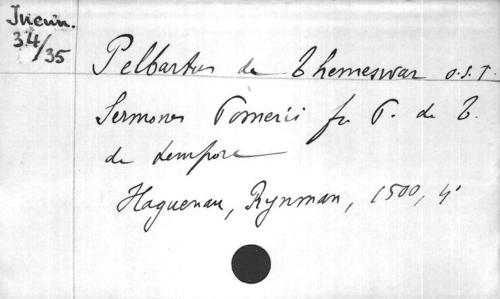 Incun.
34/35
Pelbartus de Themeswar O.S.F.
Sermones Pomerii fr P. de T.
de tempore
Haguenau, Rynman, 1500, 4°